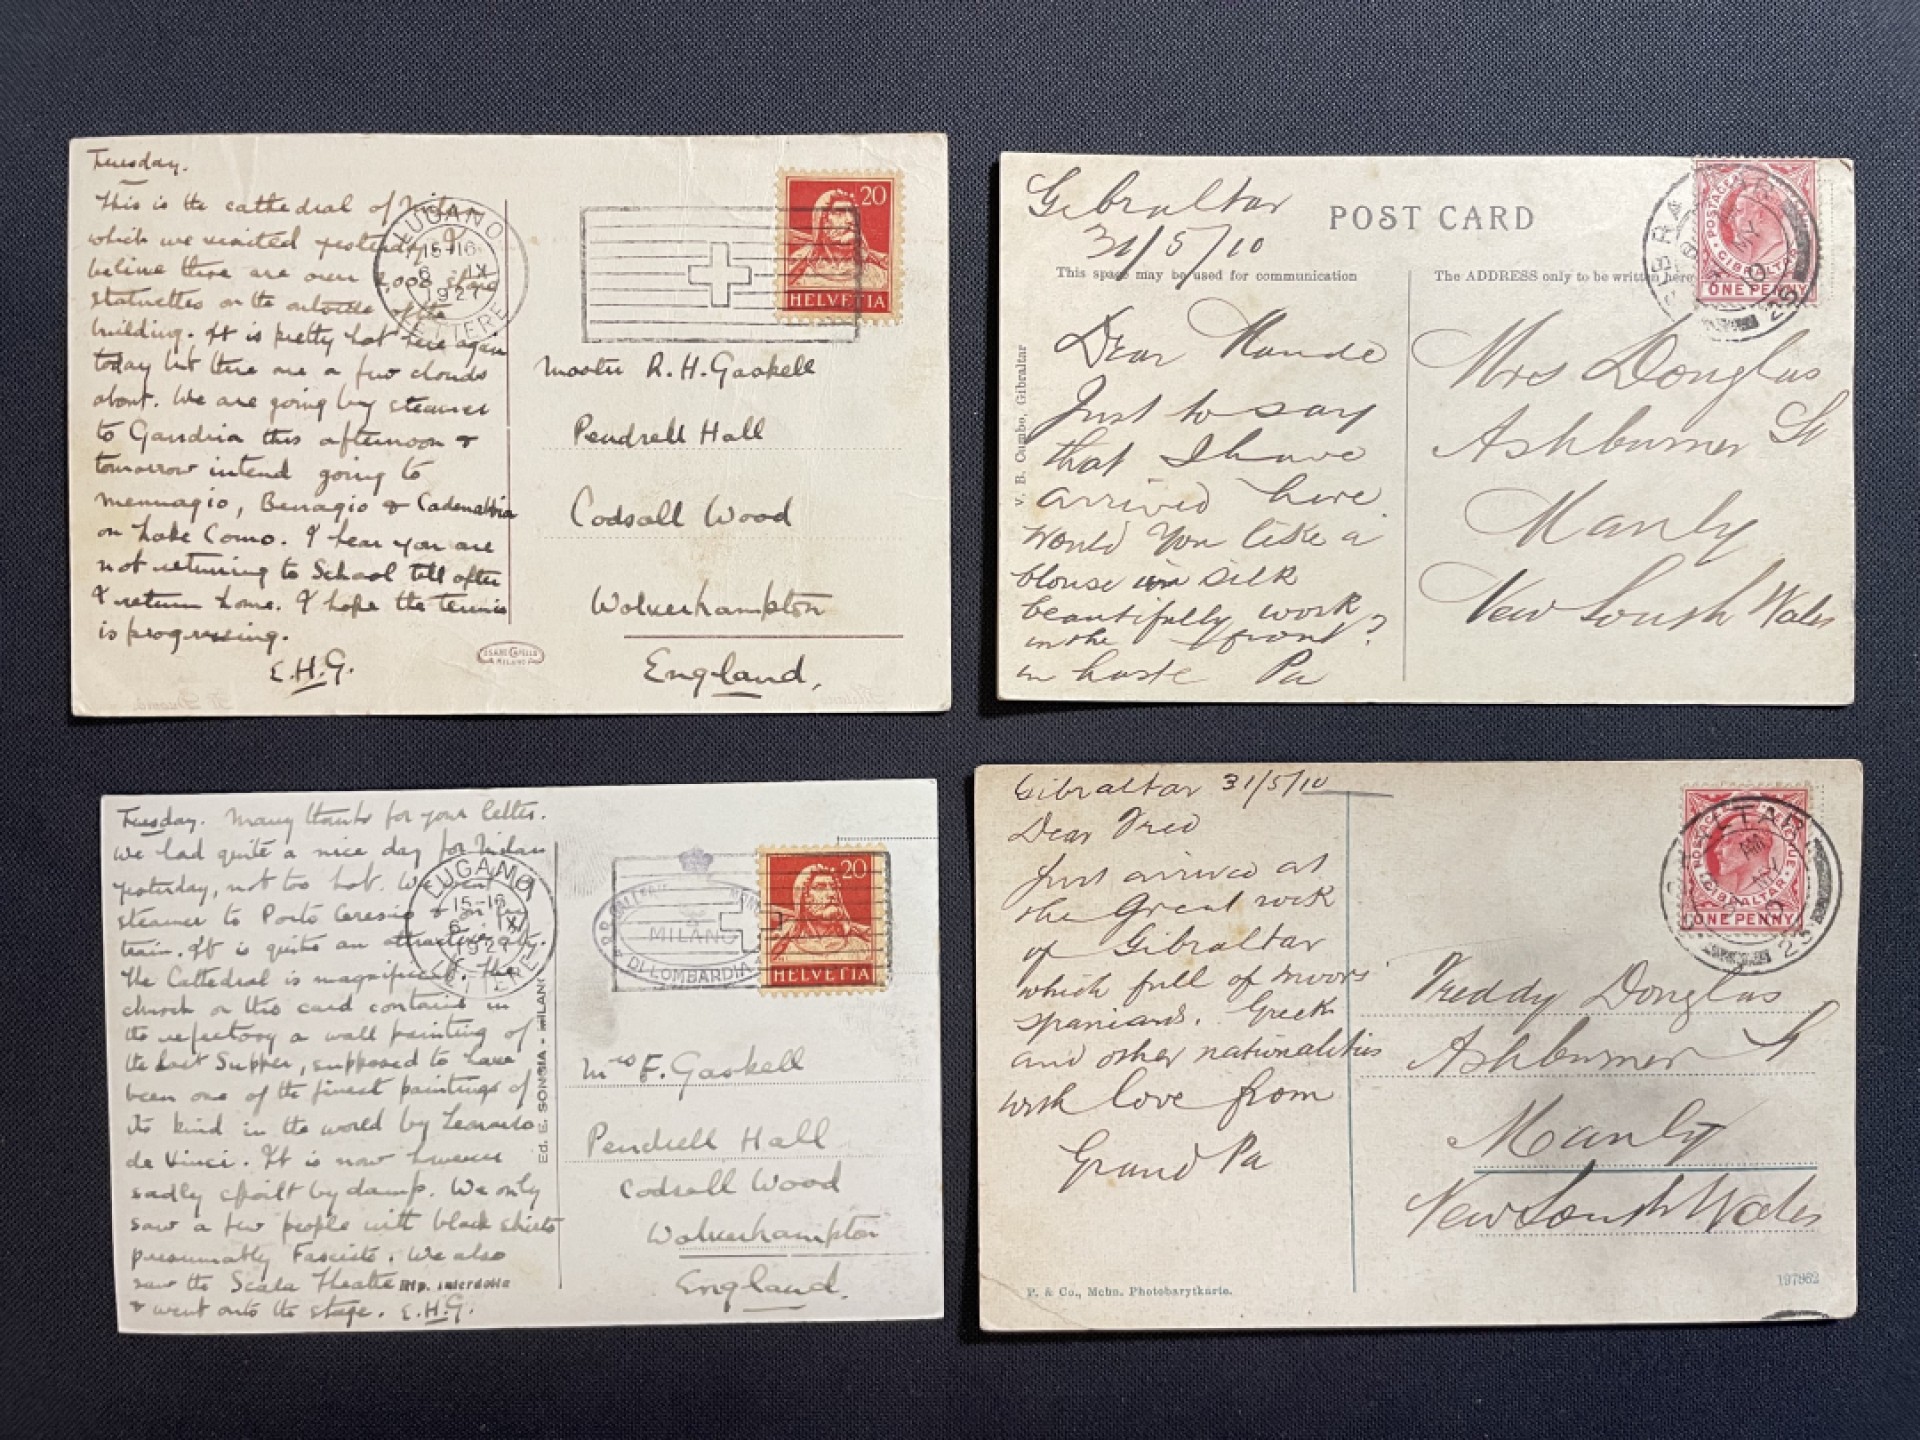 Tuesday.
This is the cathedral of Milan
which we visited yesterday. I
believe there are over 2,000
statuettes on the outside of the
building. It is pretty hot here again
today but there are a few clouds
about. We are going by steamer
to Gandria this afternoon &
tomorrow intend going to
Mennagio, Bellagio & Cadenabbia
on Lake Como. I hear you are
not returning to School till after
I return home. I hope the tennis
is progressing.
E.H.G.
LUGANO
15-16
6 IX
1927
LETTERE
20
HELVETIA
Master R. H. Gaskell
Pendrell Hall
Codsall Wood
Wolverhampton
England,
Gibraltar
31/5/10
POST CARD
This space may be used for communication
The ADDRESS only to be written here
V. B. Cumbo, Gibraltar
Dear Maude
Just to say
that I have
arrived here.
Would you like a
blouse in silk
beautifully work
in the front?
in haste Pa
POSTAGE
GIBRALTAR
ONE PENNY
MY
10
25
Mrs Douglas
Ashburner St
Manly
New South Wales
Tuesday. Many thanks for your letter.
We had quite a nice day for Milan
yesterday, not too hot. We went
steamer to Porto Ceresio & on by
train. It is quite an attractive city.
The Cathedral is magnificent. The
church on this card contains in
the refectory a wall painting of
the Last Supper, supposed to have
been one of the finest paintings of
its kind in the world by Leonardo
de Vinci. It is now however
sadly spoilt by damp. We only
saw a few people with black shirts
presumably Fascists. We also
saw the Scala Theatre
& went onto the stage. E.H.G.
Rip. interdetta
Ed. E. SONGIA - MILANO
LUGANO
15-16
6 IX
1927
LETTERE
MILANO
DI LOMBARDIA
20
HELVETIA
Mrs F. Gaskell
Pendrell Hall
Codsall Wood
Wolverhampton
England.
Gibraltar 31/5/10
Dear Fred
Just arrived at
the Great rock
of Gibraltar
which full of moors
spaniards. Greek
and other nationalities
with love from
Grand Pa
POSTAGE & REVENUE
GIBRALTAR
ONE PENNY
MY
10
25
Freddy Douglas
Ashburner St
Manly
New South Wales
P. & Co., Mchn. Photobarytkarte.
197862